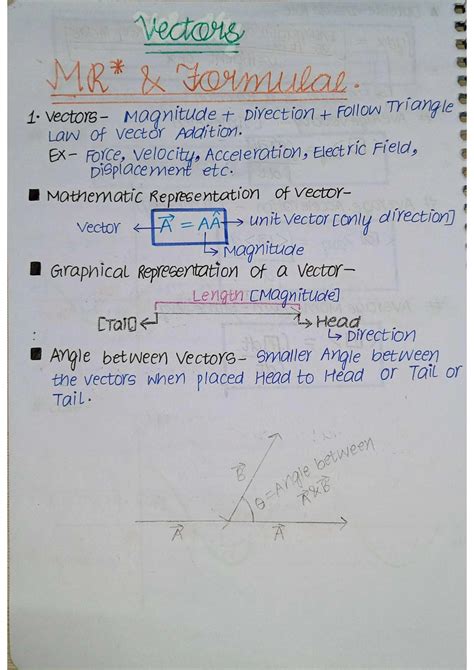 Vectors
MR* & Formulae.
1. Vectors- Magnitude + Direction + Follow Triangle
Law of Vector Addition.
Ex- Force, Velocity, Acceleration, Electric Field,
Displacement etc.
■ Mathematic Representation of Vector-
Vector ← A⃗ = AÂ → unit Vector [only direction]
↳ Magnitude
■ Graphical Representation of a Vector-
Length [Magnitude]
[Tail] ↵ ↳ Head
↳ Direction
■ Angle between Vectors- Smaller Angle between
the vectors when placed Head to Head or Tail or
Tail.
B⃗
θ = Angle between
A⃗ & B⃗
A⃗ A⃗